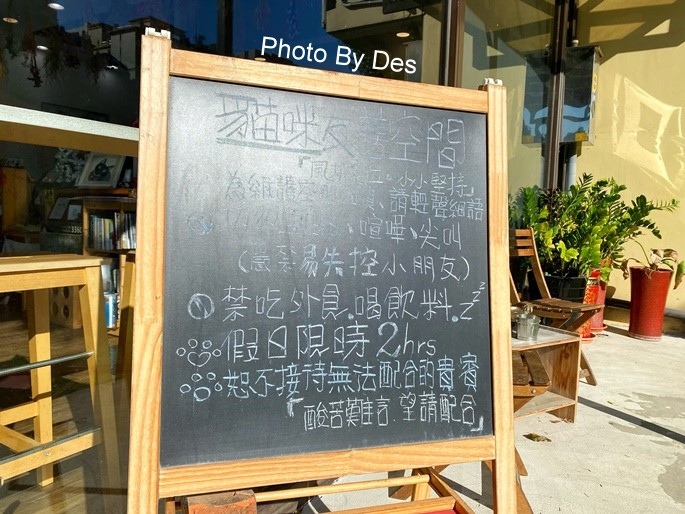 Photo By Des
貓咪友善空間
小小堅持」
請輕聲細語
喧嘩、尖叫
易失控小朋友)
禁吃外食.喝飲料.zzz
假日限時2hrs
恕不接待無法配合的貴賓
「酸苦難言.望請配合」